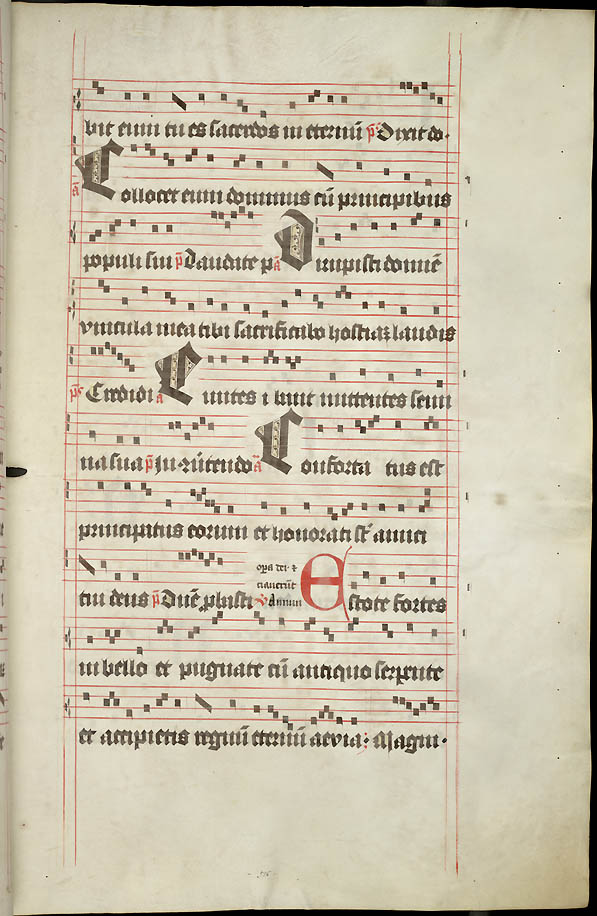 bit eum tu es sacerdos in eternū p̄ Dixit do.
ā Collocet eum dominus cū principibus
populi sui p̄ Laudate p ā Dirupisti domine
vincula mea tibi sacrificabo hostiaʒ laudis
p̄s Credidi ā Euntes ibant mittentes semi
na sua p̄ In ꝯūtendo ā Conforta tus est
principatus eorum et honorati st̄ amici
tui deus p̄ Dn̄e ꝓbasti
Annun
Estote fortes
in bello et pugnate cū antiquo serpente
et accipietis regnū eternū aevia: Magni.